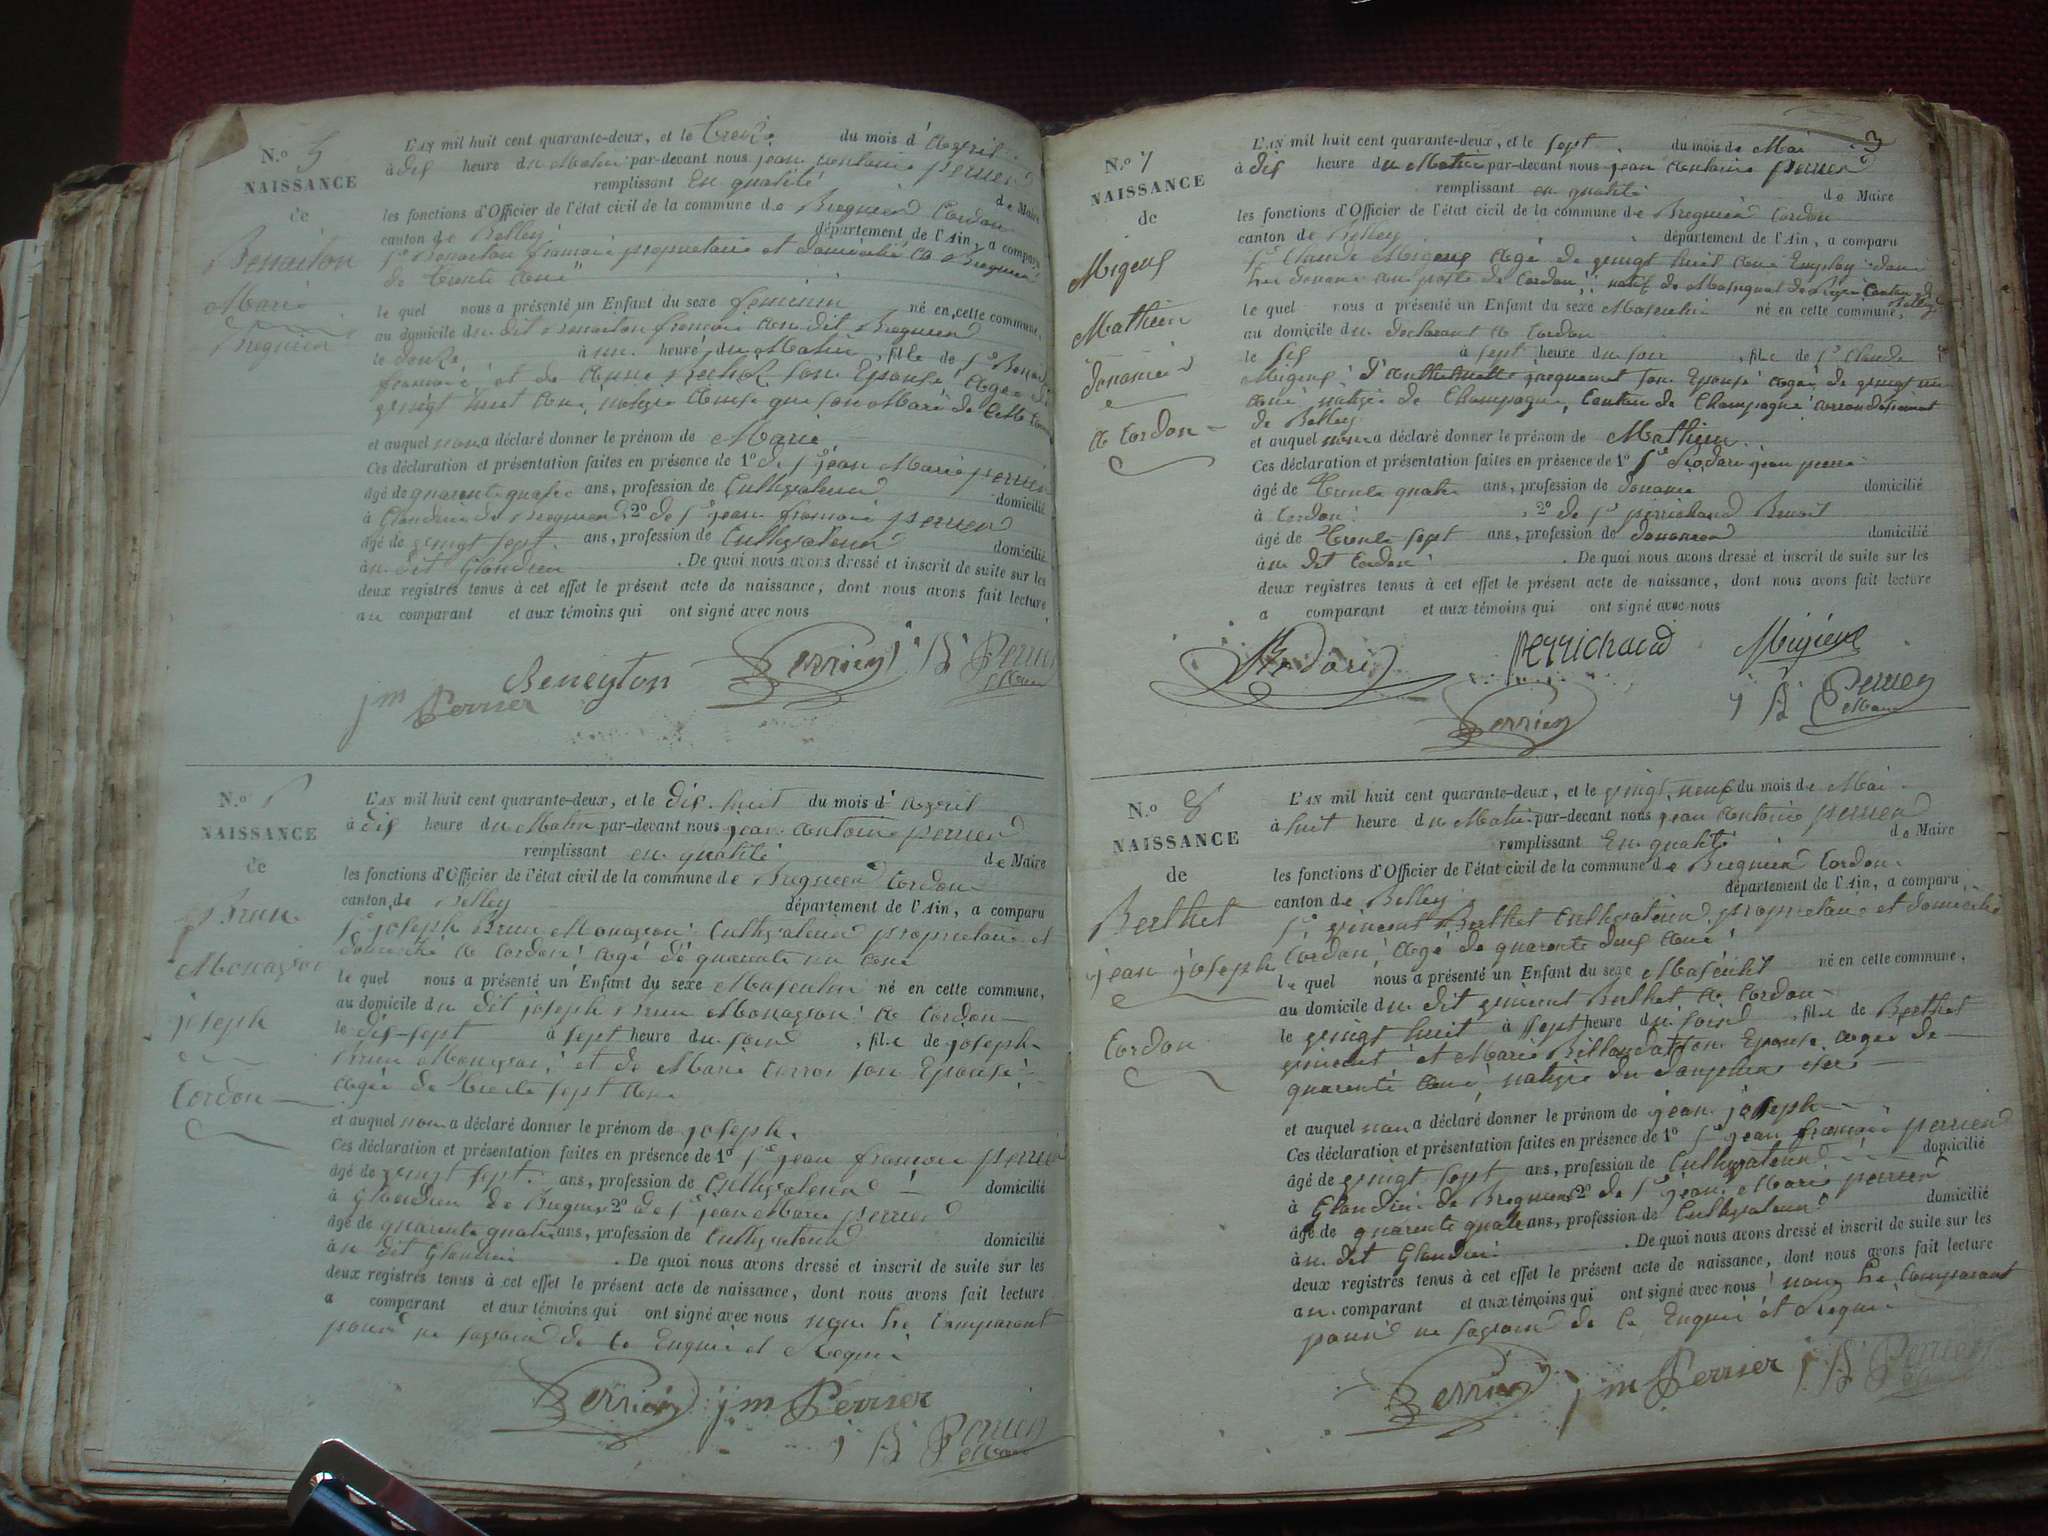 N.o 5
NAISSANCE
de
Marie
Breguier
L'AN mil huit cent quarante-deux, et le treize du mois d'avril
à dix heure du Matin par-devant nous jean antoine perrier
remplissant En qualité de Maire
les fonctions d'Officier de l'état civil de la commune de Bregnier Cordon
canton de Belley département de l'Ain, a comparu
françois proprietaire et domicilié a Bregnier
de trente ans
le quel nous a présenté un Enfant du sexe feminin né en cette commune,
au domicile du dit françois au dit Bregnier
le douze à une heure du Matin, fille de Sr
françois et de anne son Epouse, agée de
vingt huit ans native ainsi que son Mari de Cette
et auquel nous a déclaré donner le prénom de Marie
Ces déclaration et présentation faites en présence de 1o de Sr jean Marie perrier
âgé de quarente quatre ans, profession de Cultivateur domicilié
à Glandieu de Bregnier 2o de Sr jean françois perrier
âgé de vingt sept ans, profession de Cultivateur domicilié
à u dit Glandieu . De quoi nous avons dressé et inscrit de suite sur les
deux registres tenus à cet effet le présent acte de naissance, dont nous avons fait lecture
au comparant et aux témoins qui ont signé avec nous
Beneyton Perrier j B Perrier
jm Perrier Maire
N.o
NAISSANCE
de
Brun
joseph
Cordon
L'AN mil huit cent quarante-deux, et le dix-huit du mois d'avril
à dix heure du Matin par-devant nous jean antoine perrier
remplissant en qualité de Maire
les fonctions d'Officier de l'état civil de la commune de Bregnier Cordon
canton de Belley département de l'Ain, a comparu
Sr joseph Brun Cultivateur proprietaire et
domicilié a Cordon agé de quarante un ans
le quel nous a présenté un Enfant du sexe Masculin né en cette commune,
au domicile du dit joseph Brun a Cordon
le dix-sept à sept heure du soir, fils de joseph
Brun et de Marie son Epouse
agée de trente sept ans
et auquel nous a déclaré donner le prénom de joseph
Ces déclaration et présentation faites en présence de 1o Sr jean françois perrier
âgé de vingt sept ans, profession de Cultivateur domicilié
à Glandieu de Bregnier 2o de Sr jean Marie perrier
âgé de quarente quatre ans, profession de Cultivateur domicilié
à u dit Glandieu . De quoi nous avons dressé et inscrit de suite sur les
deux registres tenus à cet effet le présent acte de naissance, dont nous avons fait lecture
a comparant et aux témoins qui ont signé avec nous non le Comparant
pour ne savoir de ce Enquis et Requis
Perrier jm Perrier
j B Perrier
Maire
3
N.o 7
NAISSANCE
de
Mathieu
a Cordon
L'AN mil huit cent quarante-deux, et le sept du mois de Mai
à dix heure du Matin par-devant nous jean antoine perrier
remplissant en qualité de Maire
les fonctions d'Officier de l'état civil de la commune de Bregnier Cordon
canton de Belley département de l'Ain, a comparu
Sr Claude agé de vingt huit ans Employé dans
les douane au poste de Cordon, natif de Canton de
Belley
le quel nous a présenté un Enfant du sexe Masculin né en cette commune,
au domicile du declarant a Cordon
le six à sept heure du soir, fils de Sr Claude
son Epouse agée de vingt
ans native de Champagne, Canton de Champagne arrondissement
de Belley
et auquel nous a déclaré donner le prénom de Mathieu
Ces déclaration et présentation faites en présence de 1o Sr jean pierre
âgé de trente quatre ans, profession de domicilié
à Cordon 2o de Sr perrichaud Benoit
âgé de trente sept ans, profession de douanier domicilié
à u dit Cordon . De quoi nous avons dressé et inscrit de suite sur les
deux registres tenus à cet effet le présent acte de naissance, dont nous avons fait lecture
a comparant et aux témoins qui ont signé avec nous
Perrichaud
Perrier j B Perrier
Maire
N.o 8
NAISSANCE
de
Berthet
jean joseph
Cordon
L'AN mil huit cent quarante-deux, et le vingt neuf du mois de Mai
à huit heure du Matin par-devant nous jean antoine perrier
remplissant En qualité de Maire
les fonctions d'Officier de l'état civil de la commune de Bregnier Cordon
canton de Belley département de l'Ain, a comparu
Sr vincent Berthet Cultivateur proprietaire et domicilié
Cordon, agé de quarente deux ans
le quel nous a présenté un Enfant du sexe Masculin né en cette commune,
au domicile du dit vincent Berthet a Cordon
le vingt huit à sept heure du soir, fils de Berthet
vincent et Marie son Epouse agée de
quarente ans native du
et auquel nous a déclaré donner le prénom de jean joseph
Ces déclaration et présentation faites en présence de 1o Sr jean françois perrier
âgé de vingt sept ans, profession de Cultivateur domicilié
à Glandieu de Bregnier 2o de Sr jean Marie perrier
âgé de quarente quatre ans, profession de Cultivateur domicilié
à u dit Glandieu . De quoi nous avons dressé et inscrit de suite sur les
deux registres tenus à cet effet le présent acte de naissance, dont nous avons fait lecture
au comparant et aux témoins qui ont signé avec nous non le Comparant
pour ne savoir de ce Enquis et Requis
Perrier jm Perrier j B Perrier
Maire